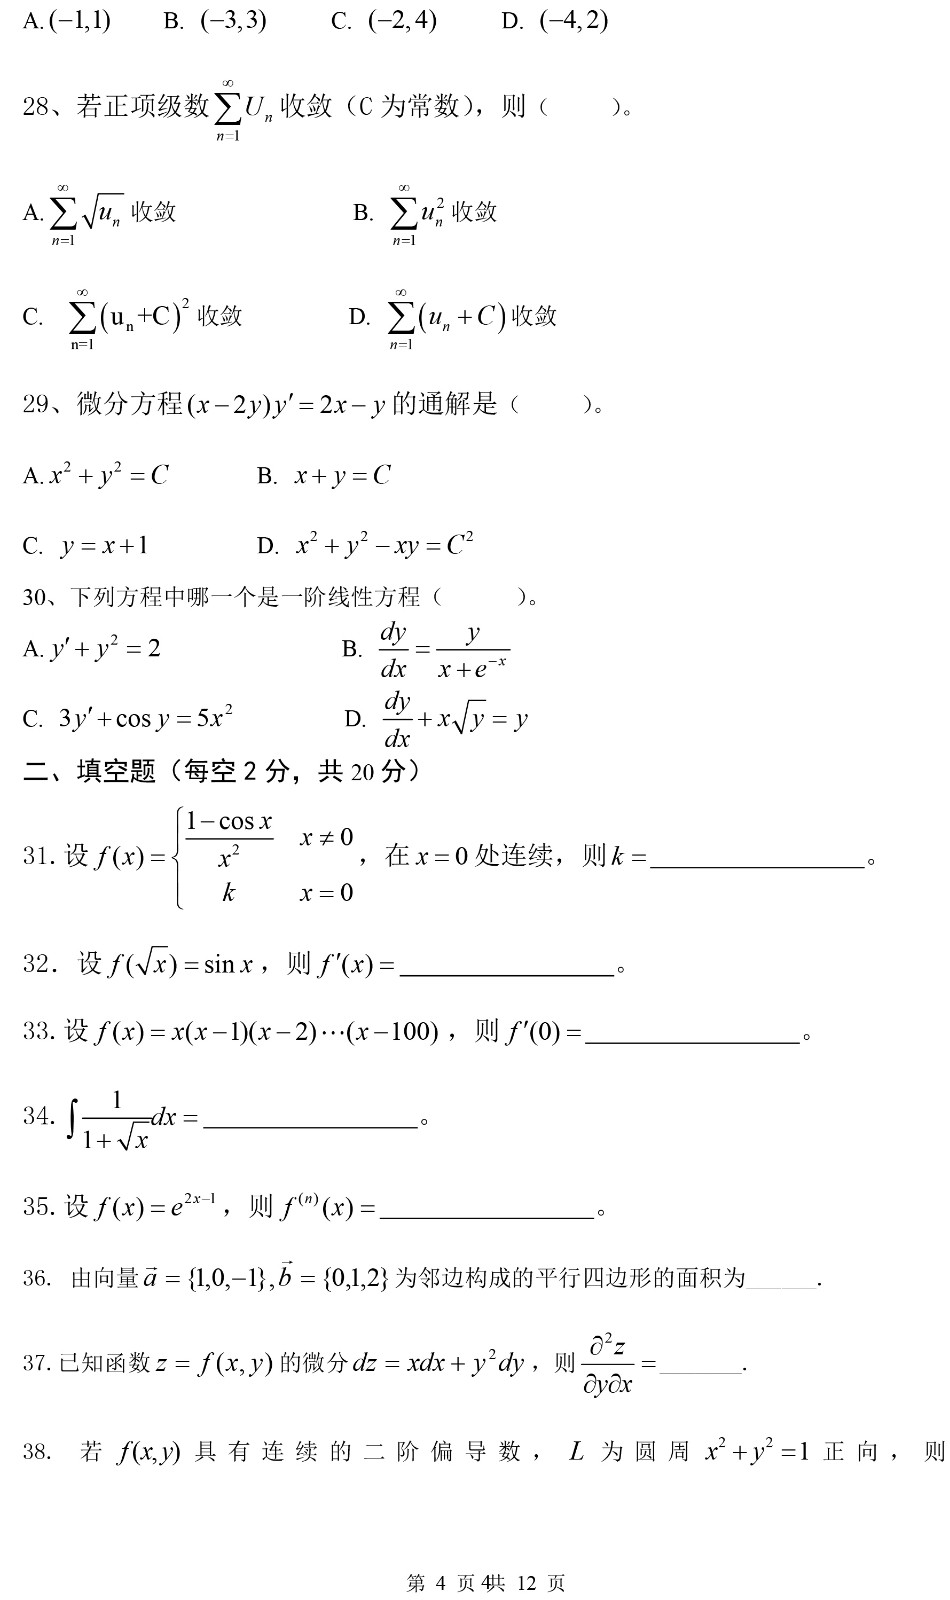 A.(−1,1) B. (−3,3) C. (−2,4) D. (−4,2)
28、若正项级数 $\sum_{n=1}^{\infty} U_n$ 收敛（C 为常数），则（ ）。
A. $\sum_{n=1}^{\infty} \sqrt{u_n}$ 收敛 B. $\sum_{n=1}^{\infty} u_n^2$ 收敛
C. $\sum_{n=1}^{\infty} (u_n+C)^2$ 收敛 D. $\sum_{n=1}^{\infty} (u_n+C)$ 收敛
29、微分方程 $(x-2y)y'=2x-y$ 的通解是（ ）。
A. $x^2+y^2=C$ B. $x+y=C$
C. $y=x+1$ D. $x^2+y^2-xy=C^2$
30、下列方程中哪一个是一阶线性方程（ ）。
A. $y'+y^2=2$ B. $\frac{dy}{dx}=\frac{y}{x+e^{-x}}$
C. $3y'+\cos y=5x^2$ D. $\frac{dy}{dx}+x\sqrt{y}=y$
二、填空题（每空 2 分，共 20 分）
31.设 $f(x)=\begin{cases}\frac{1-\cos x}{x^2} & x\neq 0\\ k & x=0\end{cases}$，在 $x=0$ 处连续，则 $k=$＿＿＿＿。
32. 设 $f(\sqrt{x})=\sin x$，则 $f'(x)=$＿＿＿＿。
33.设 $f(x)=x(x-1)(x-2)\cdots(x-100)$，则 $f'(0)=$＿＿＿＿。
34. $\int\frac{1}{1+\sqrt{x}}dx=$＿＿＿＿。
35.设 $f(x)=e^{2x-1}$，则 $f^{(n)}(x)=$＿＿＿＿。
36. 由向量 $\vec{a}=\{1,0,-1\},\vec{b}=\{0,1,2\}$ 为邻边构成的平行四边形的面积为______.
37.已知函数 $z=f(x,y)$ 的微分 $dz=xdx+y^2dy$，则 $\frac{\partial^2 z}{\partial y\partial x}=$_______.
38. 若 $f(x,y)$ 具有连续的二阶偏导数，$L$ 为圆周 $x^2+y^2=1$ 正向，则
第 4 页 4共 12 页